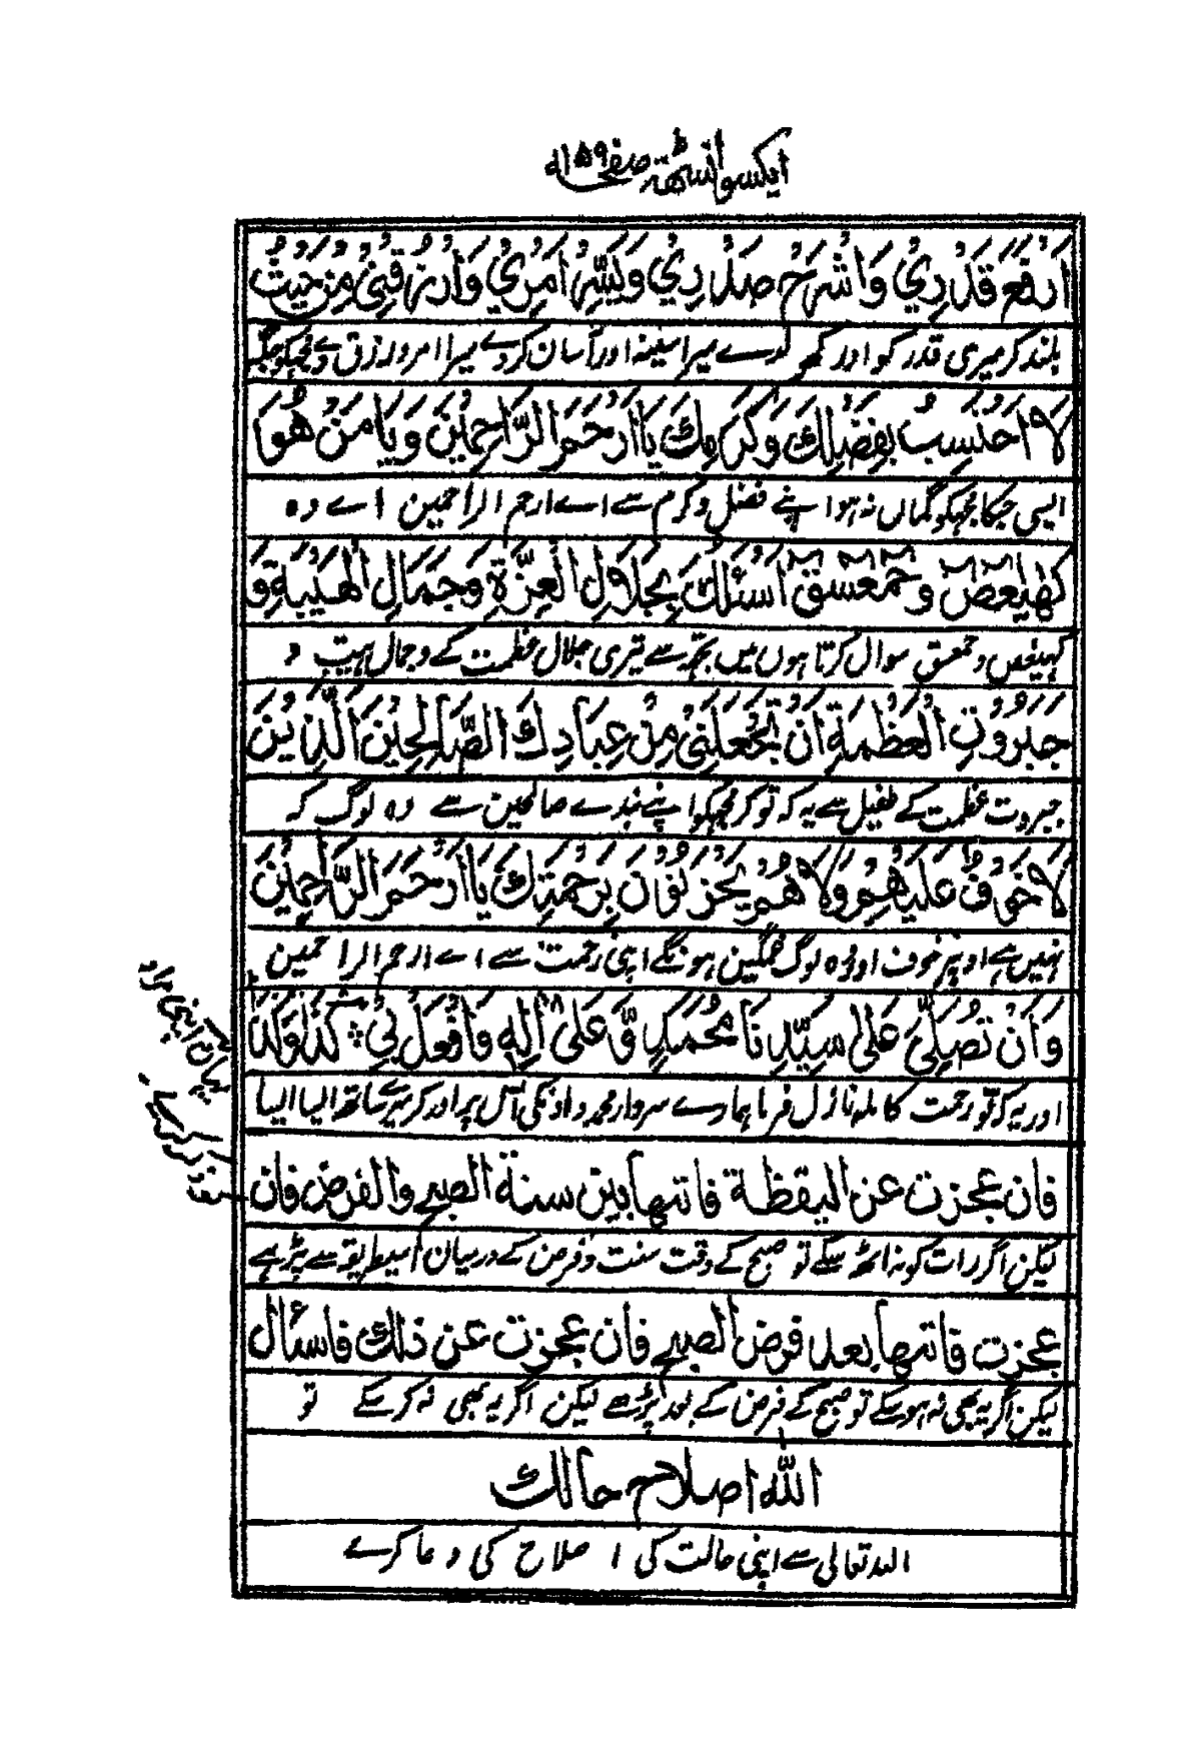 ایکسو انسٹھ صفحہ ۱۵۹
اَرْفَعْ قَدْرِيْ وَاشْرَحْ صَدْرِيْ وَيَسِّرْ اَمْرِيْ وَارْزُقْنِيْ مِنْ حَيْثُ
بلند کر میری قدر کو اور کھولدے میرا سینہ اور آسان کردے میرا امر اور رزق دے مجہکو جگہ
لَا اَحْتَسِبُ بِفَضْلِكَ وَكَرَمِكَ يَا اَرْحَمَ الرَّاحِمِيْنَ وَيَا مَنْ هُوَ
ایسی جسکا مجہکو گماں نہ ہو اپنے فضل و کرم سے اے ارحم الراحمین اے وہ
كٓهٰيٰعٓصٓ وَحٰمٓعٓسٓقٓ اَسْئَلُكَ بِجَلَالِ الْعِزَّةِ وَجَمَالِ الْهَيْبَةِ وَ
کہیعص و حمعسق سوال کرتا ہوں میں تجھ سے تیری جلال عظمت کے و جمال ہیبت و
جَبَرُوْتِ الْعَظْمَةِ اَنْ تَجْعَلَنِيْ مِنْ عِبَادِكَ الصَّالِحِيْنَ الَّذِيْنَ
جبروت عظمت کے طفیل سے یہ کہ تو کر مجہکو اپنے بندے صالحین سے وہ لوگ کہ
لَا خَوْفٌ عَلَيْهِمْ وَلَا هُمْ يَحْزَنُوْنَ بِرَحْمَتِكَ يَا اَرْحَمَ الرَّاحِمِيْنَ
نہیں ہے اونپر خوف اور وہ لوگ غمگین ہونگے اپنی رحمت سے اے ارحم الراحمین
وَاَنْ تُصَلِّيَ عَلٰى سَيِّدِنَا مُحَمَّدٍ وَّعَلٰى اٰلِهٖ وَافْعَلْ بِيْ كَذَا وَكَذَا
اور یہ کہ تو رحمت کاملہ نازل فرما ہمارے سردار محمد و اونکی آل پر اور کر میرے ساتھ ایسا ایسا
یہاں اپنی مراد
ذکر کرے
فان عجزت عن اليقظة فاتها بين سنة الصبح والفرض فان
لیکن اگر رات کو نہ اٹھ سکے تو صبح کے وقت سنت و فرض کے درمیان اسیطریقہ سے پڑہے
عجزت فاتها بعد فرض الصبح فان عجزت عن ذلك فاسأل
لیکن اگر یہ بھی نہ ہو سکے تو صبح کے فرض کے بعد پڑھے لیکن اگر یہ بھی نہ کر سکے تو
الله اصلاح حالك
اللہ تعالی سے اپنی حالت کی اصلاح کی دعا کرے